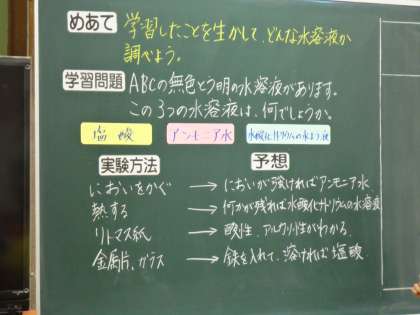 めあて 学習したことを生かして、どんな水溶液か
調べよう。
学習問題 ABCの無色とう明の水溶液があります。
この3つの水溶液は、何でしょうか。
塩酸 アンモニア水 水酸化ナトリウムの水よう液
実験方法 予想
においをかぐ → においが強ければアンモニア水
熱する → 何かが残れば水酸化ナトリウムの水溶液
リトマス紙 → 酸性、アルカリ性がわかる。
金属片、ガラス → 鉄を入れて、溶ければ塩酸